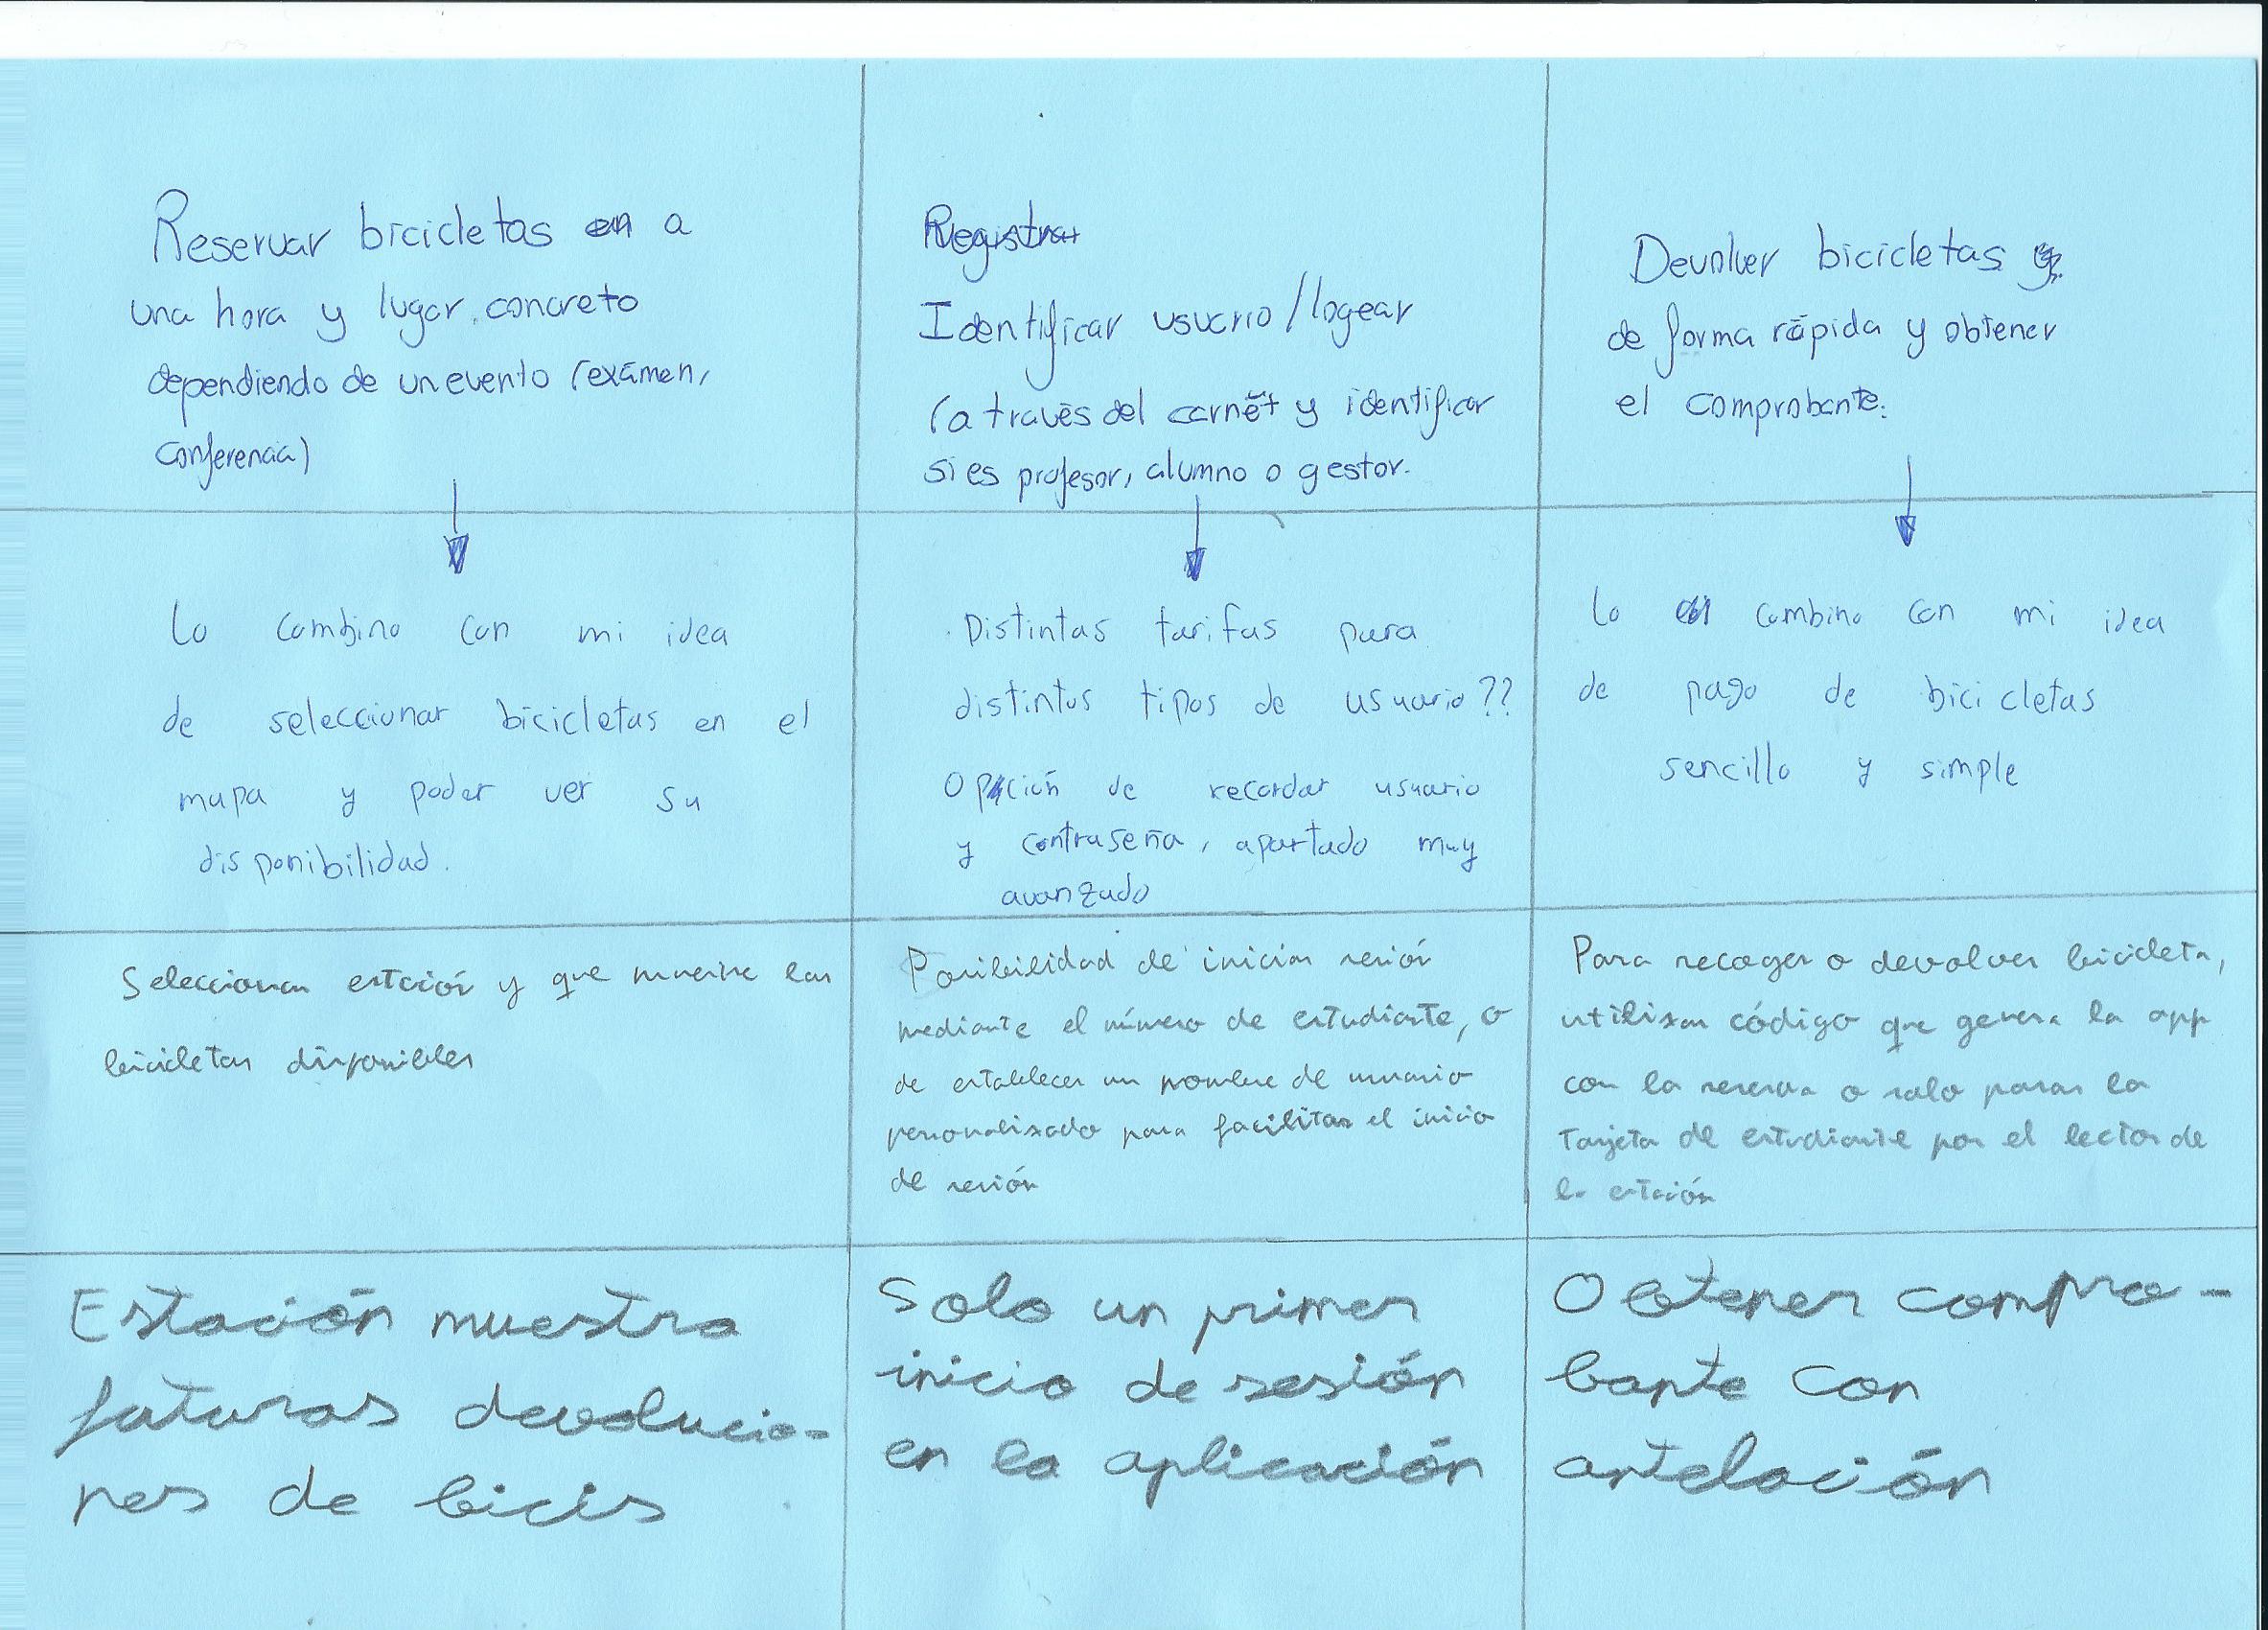 Reservar bicicletas en a
una hora y lugar concreto
dependiendo de un evento (exámen,
conferencia)
Registrar
Identificar usuario/logear
(a través del carnét y identificar
si es profesor, alumno o gestor.
Devolver bicicletas y
de forma rápida y obtener
el comprobante.
Lo combino con mi idea
de seleccionar bicicletas en el
mapa y poder ver su
disponibilidad.
Distintas tarifas para
distintos tipos de usuario??
Opción de recordar usuario
y contraseña, apartado muy
avanzado
Lo combino con mi idea
de pago de bicicletas
sencillo y simple
Seleccionar estción y que muestre las
bicicletas disponibles
Posibilidad de iniciar sesión
mediante el número de estudiante, o
de establecer un nombre de usuario
personalizado para facilitar el inicio
de sesión
Para recoger o devolver bicicleta,
utilizar código que genera la app
con la reserva o solo pasar la
tarjeta de estudiante por el lector de
la estación
Estación muestra
futuras devolucio-
nes de bicis
Solo un primer
inicio de sesión
en la aplicación
Obtener compro-
bante con
antelación